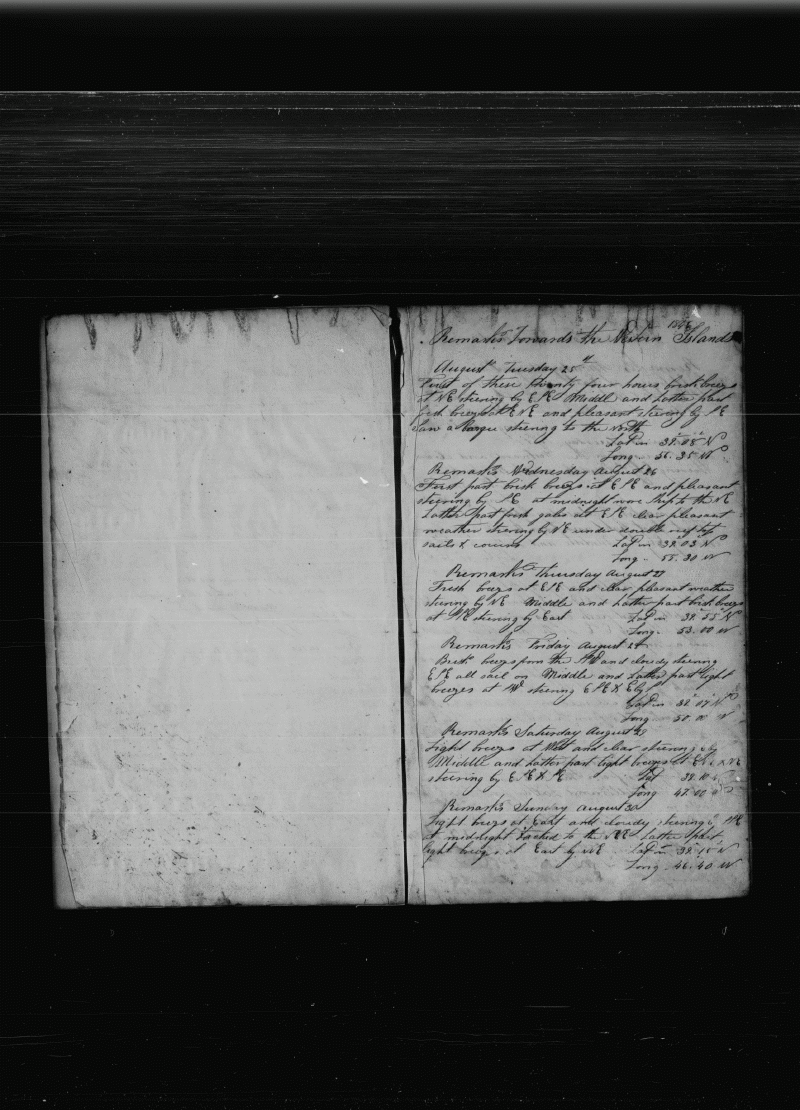 1846
Remarks Towards the Western Islands
August Tuesday 25th
First of these twenty four hours brisk breezes
at NE steering by ESE Middle and Latter part
fresh breezes at ENE and pleasant steering by SE
Saw a Barque steering to the North
Lat in 39.08 N
Long 56.35 W
Remarks Wednesday August 26
First part brisk breezes at ESE and pleasant
steering by at midnight wore ship to the NE
Latter part fresh gales at ESE clear pleasant
weather steering by NE under double reef top
sails & courses Lat in 39.03 N
Long 55.30 W
Remarks Thursday August 27
Fresh breezes at ESE and clear pleasant weather
steering by NE Middle and Latter part brisk breezes
at steering by East Lat in 39.55 N
Long 53.00 W
Remarks Friday August 28
Brisk breezes from the and cloudy steering
ESE all sail on Middle and Latter part light
breezes at steering ESE & E by
Lat in 38.07 N
Long 50.00 W
Remarks Saturday August 29
Light breezes at West and clear steering E by
Middle and Latter part light breezes at & NE
steering by ESE & SE Lat 38.10
Long 47.00
Remarks Sunday August 30
Light breezes at East and cloudy steering
At midnight tacked to the Latter part
light breezes at East by NE Lat in 38.15 N
Long 46.40 W